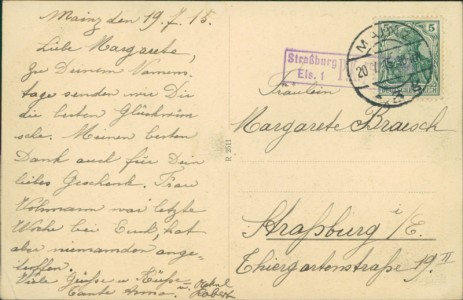 Mainz den 19. 7. 15.
Liebe Margarete,
Zu Deinem Namens-
tage senden wir Dir
die besten Glückwün
sche. Meinen besten
Dank auch für Dein
liebes Geschenk. Frau
war letzte
Woche bei Euch, hat
aber niemanden ange-
troffen.
Viele Grüsse u. Küsse
Tante Anna. u. Onkel
Robert
R 2511
Straßburg
Els. 1
MAINZ
5 5
Fräulein
Margarete Braesch
Straßburg i/E.
Thiergartenstraße 19 II